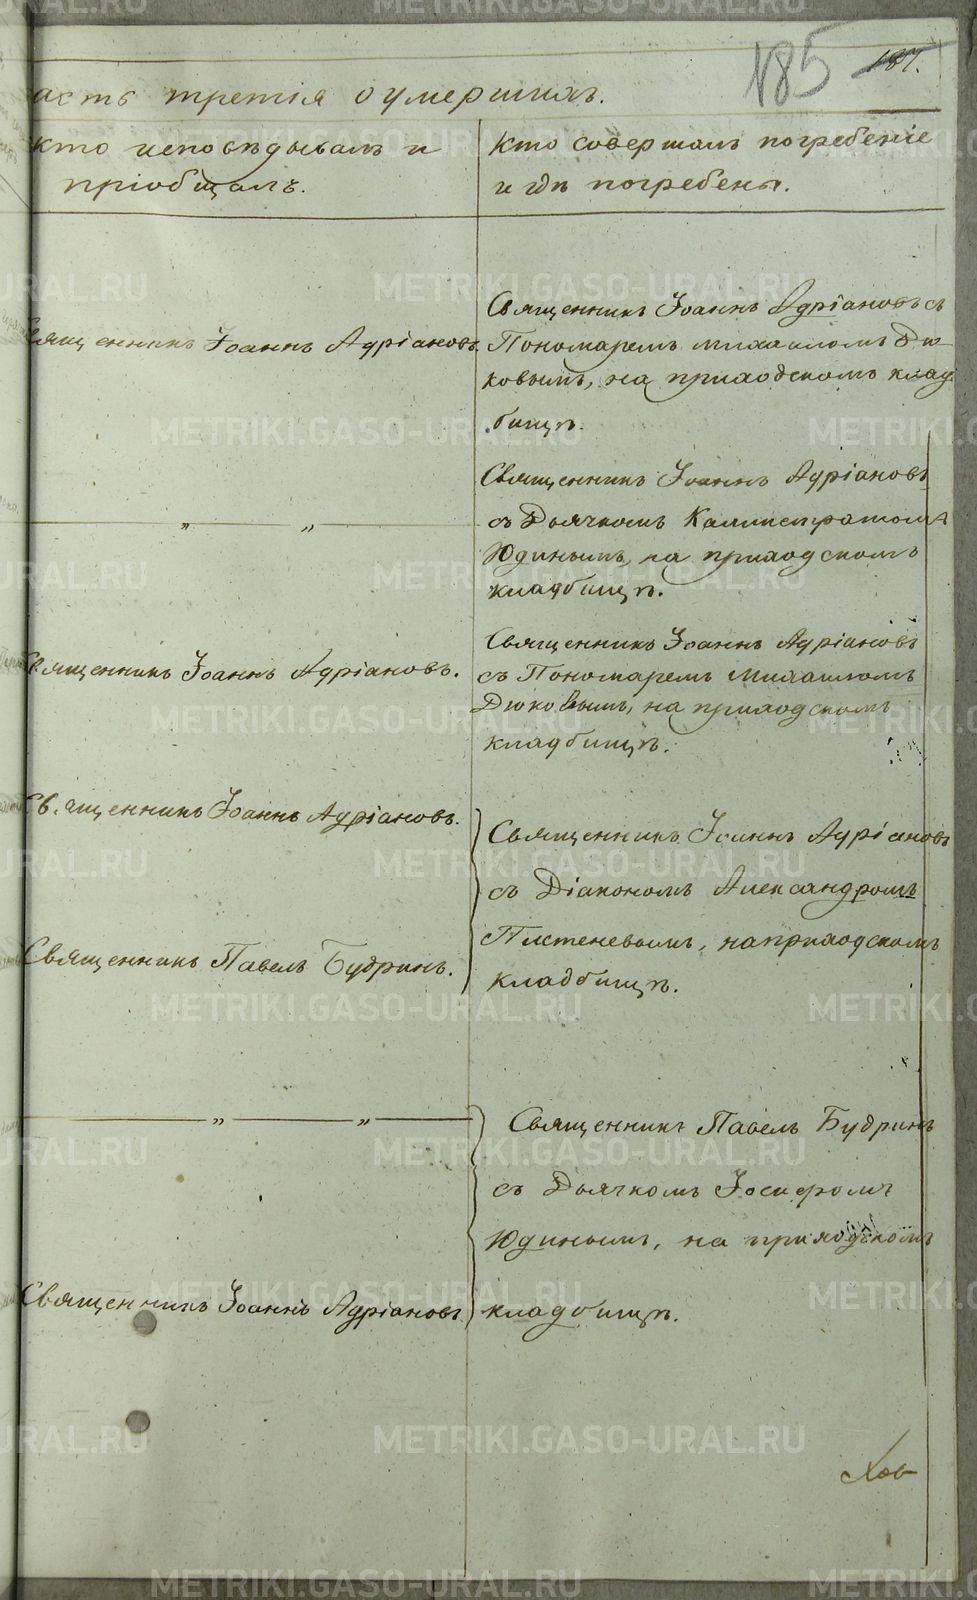 185 187.
асть третія о умершихъ.
кто исповѣдывалъ и
пріобщалъ.
Кто совершалъ погребеніе
и гдѣ погребены.
Священникъ Іоаннъ Адріановъ съ
вященникъ Іоаннъ Адріановъ.
Пономаремъ Михаиломъ Дю-
ковымъ, на приходскомъ клад
бищѣ.
Священникъ Іоаннъ Адріановъ
— „ — „ —
съ Дьячкомъ Каллистратомъ
Юдинымъ, на приходскомъ
кладбищѣ.
Священникъ Іоаннъ Адріановъ
Священникъ Іоаннъ Адріановъ.
съ Пономаремъ Михаиломъ
Дюковымъ, на приходскомъ
кладбищѣ.
Священникъ Іоаннъ Адріановъ.
Священникъ Іоаннъ Адріановъ
съ Діакономъ Александромъ
Священникъ Павелъ Будринъ.
на приходскомъ
кладбищѣ.
— „ — „ —
Священникъ Павелъ Будринъ
съ Дьячкомъ Іосифомъ
Юдинымъ, на приходскомъ
Священникъ Іоаннъ Адріановъ
кладбищѣ.
METRIKI.GASO-URAL.RU